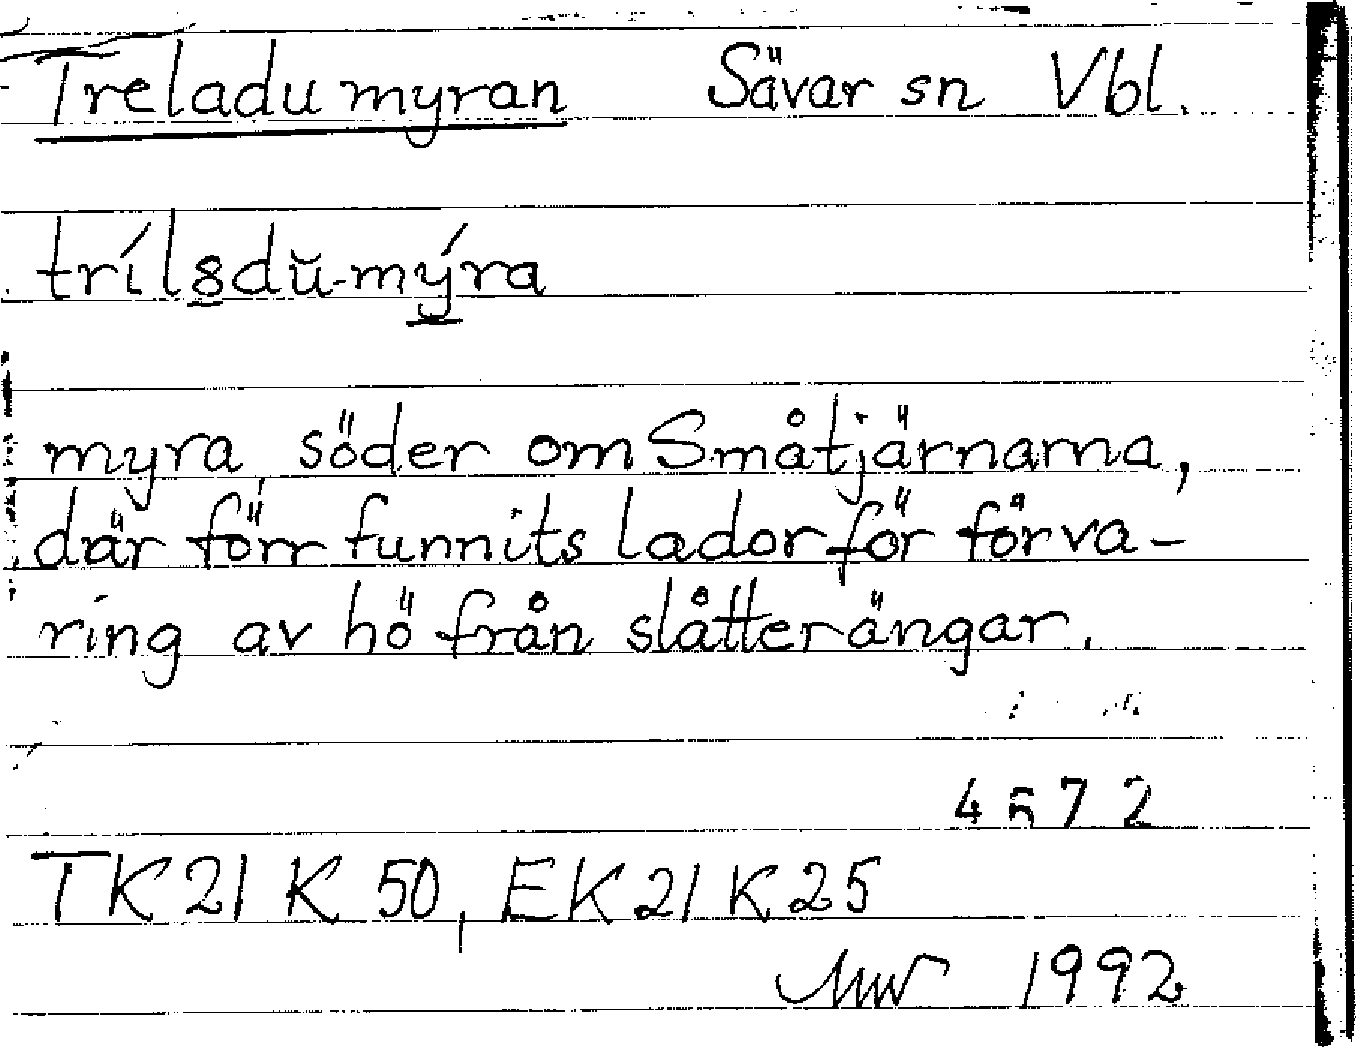 Treladumyran Sävar sn Vbl.
tríl8dŭ-mýra
myra söder om Småtjärnarna,
där förr funnits lador för förva-
ring av hö från slåtterängar.
4572
TK 21 K 50, EK 21 K 25
1992